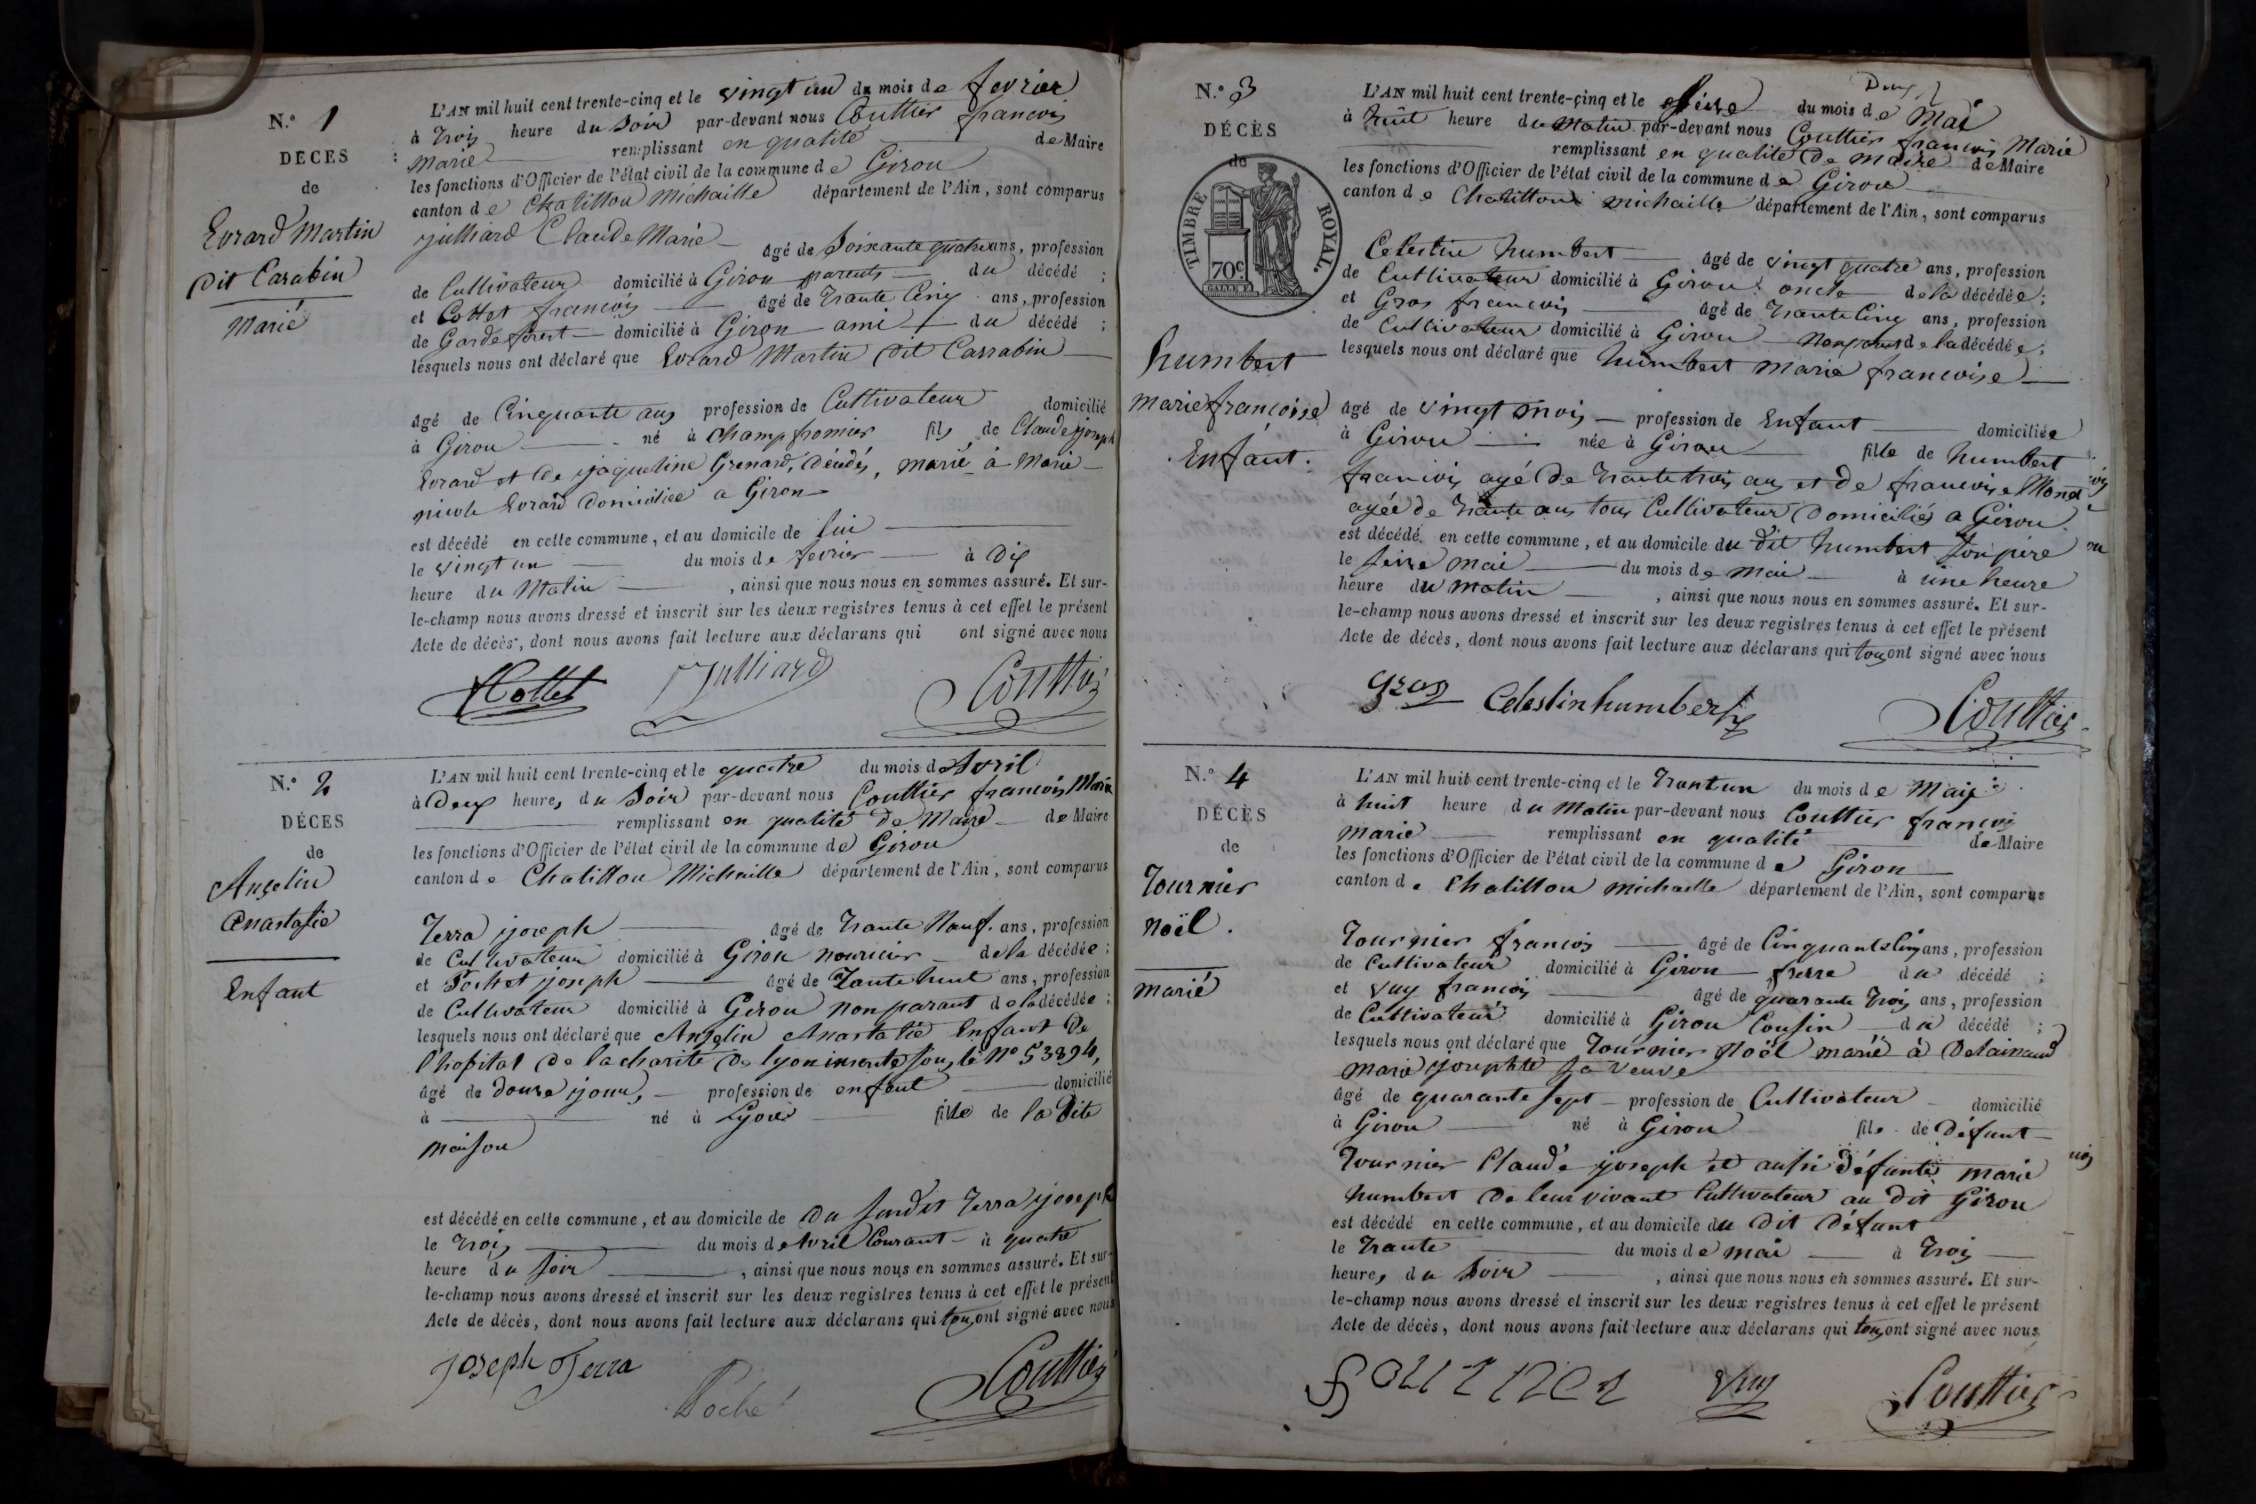 N.° 1
DÉCES
de
Evrard Martin
dit Carabin
Marié
L'AN mil huit cent trente-cinq et le vingt un du mois de fevrier
à trois heure du soir par-devant nous Couttier francois
Marie remplissant en qualité de Maire
les fonctions d'Officier de l'état civil de la commune de Giron
canton de Chatillon Michaille département de l'Ain, sont comparus
julliard Claude Marie âgé de soixante quatre ans, profession
de Cultivateur domicilié à Giron parents du décédé ;
et Cottet francois âgé de trante Cinq ans, profession
de Garde forest domicilié à Giron ami du décédé ;
lesquels nous ont déclaré que Evrard Martin dit Carrabin
âgé de Cinquante ans profession de Cultivateur domicilié
à Giron né à Champfromier fils de Claude joseph
Evrard et de jaqueline Grenard, décédés, marié à Marie
nicole Evrard domiciliée a Giron
est décédé en cette commune, et au domicile de lui
le vingt un du mois de fevrier à Dix
heure du Matin , ainsi que nous nous en sommes assuré. Et sur-
le-champ nous avons dressé et inscrit sur les deux registres tenus à cet effet le présent
Acte de décès, dont nous avons fait lecture aux déclarans qui ont signé avec nous
Cottet Julliard Couttier
N.° 2
DÉCES
de
Angelin
Anastasie
Enfant
L'AN mil huit cent trente-cinq et le quatre du mois d'Avril
à Deux heures du soir par-devant nous Couttier francois Marie
remplissant en qualité de Maire de Maire
les fonctions d'Officier de l'état civil de la commune de Giron
canton de Chatillon Michaille département de l'Ain, sont comparus
Terra joseph âgé de trante Neuf ans, profession
de Cultivateur domicilié à Giron nouricier de la décédée ;
et Pochet joseph âgé de trante huit ans, profession
de Cultivateur domicilié à Giron non parant de la décédée ;
lesquels nous ont déclaré que Angelin Anastasie Enfant de
l'hopital de la charité de lyon inscrite sous le N° 53894,
âgé de douze jours, profession de enfant domicilié
à né à Lyon fille de la dite
Maison
est décédé en cette commune, et au domicile de du susdit Terra joseph
le trois du mois de Avril Courant à quatre
heure du soir , ainsi que nous nous en sommes assuré. Et sur-
le-champ nous avons dressé et inscrit sur les deux registres tenus à cet effet le présent
Acte de décès, dont nous avons fait lecture aux déclarans qui tous ont signé avec nous
Joseph Terra Poché Couttier
N.° 3
DÉCÈS
de
TIMBRE ROYAL.
70 c.
humbert
marie françoise
Enfant.
L'AN mil huit cent trente-cinq et le seize du mois de Mai
à huit heure du matin par-devant nous Couttier francois Marie
remplissant en qualité de maire de Maire
les fonctions d'Officier de l'état civil de la commune de Giron
canton de Chatillon michaille département de l'Ain, sont comparus
Celestin humbert âgé de vingt quatre ans, profession
de Cultivateur domicilié à Giron oncle de la décédée ;
et Gros francois âgé de trante Cinq ans, profession
de Cultivateur domicilié à Giron Non parent de la décédée ;
lesquels nous ont déclaré que humbert marie francoise
âgé de vingt mois profession de Enfant domiciliée
à Giron née à Giron fille de humbert
francois agé de trante trois ans et de francoise Monet
agée de trante ans tous Cultivateur Domiciliés a Giron
est décédé en cette commune, et au domicile du dit humbert son père
le seize mai du mois de mai à une heure
heure du matin , ainsi que nous nous en sommes assuré. Et sur-
le-champ nous avons dressé et inscrit sur les deux registres tenus à cet effet le présent
Acte de décès, dont nous avons fait lecture aux déclarans qui tous ont signé avec nous
gros Celestin humbert Couttier
N.° 4
DÉCÈS
de
Tournier
Noël.
marié
L'AN mil huit cent trente-cinq et le trant un du mois de Mai
à huit heure du Matin par-devant nous Couttier francois
marie remplissant en qualité de Maire
les fonctions d'Officier de l'état civil de la commune de Giron
canton de Chatillon michaille département de l'Ain, sont comparus
Tournier francois âgé de Cinquante Cinq ans, profession
de Cultivateur domicilié à Giron frerre du décédé ;
et Vuy francois âgé de quarante trois ans, profession
de Cultivateur domicilié à Giron Cousin du décédé ;
lesquels nous ont déclaré que Tournier Noël marié à
marie josephte sa veuve
âgé de quarante sept profession de Cultivateur domicilié
à Giron né à Giron fils de Défunt
Tournier Claude joseph et aussi défunte marie
humbert de leur vivant Cultivateur au dit Giron
est décédé en cette commune, et au domicile du dit Défunt
le trante du mois de mai à trois
heures du soir , ainsi que nous nous en sommes assuré. Et sur-
le-champ nous avons dressé et inscrit sur les deux registres tenus à cet effet le présent
Acte de décès, dont nous avons fait lecture aux déclarans qui tous ont signé avec nous
Vuy Couttier